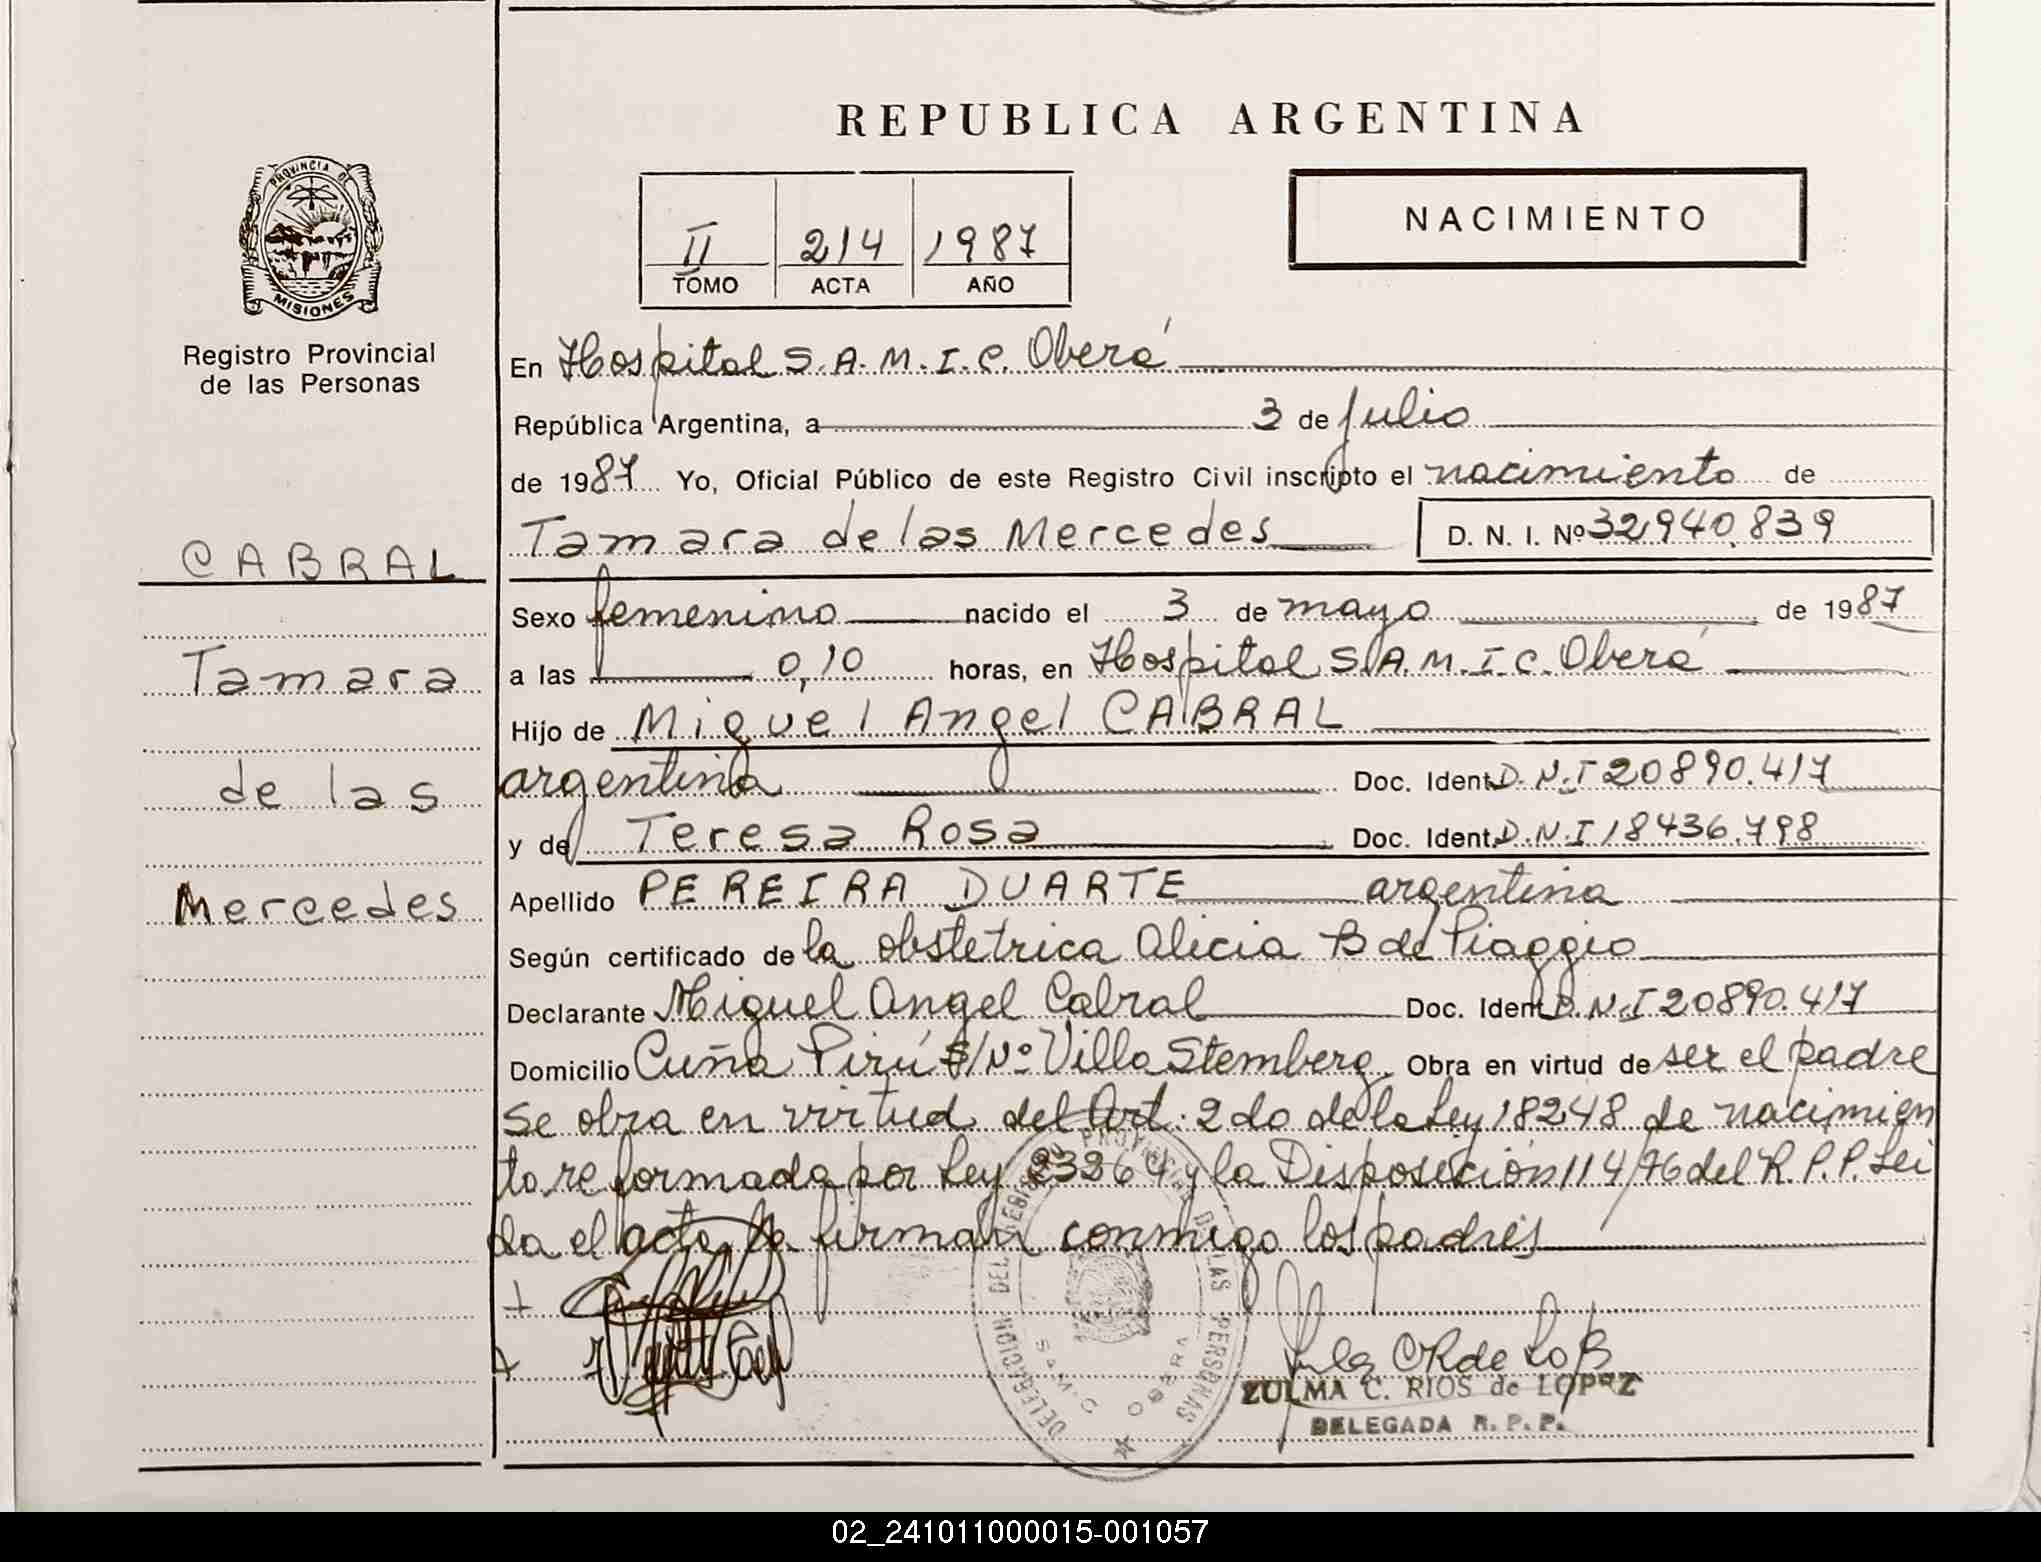 REPUBLICA ARGENTINA
PROVINCIA DE
MISIONES
Registro Provincial
de las Personas
II 214 1987
TOMO ACTA AÑO
NACIMIENTO
CABRAL
Tamara
de las
Mercedes
En Hospital S.A.M.I.C. Oberá
República Argentina, a 3 de julio
de 1987 Yo, Oficial Público de este Registro Civil inscripto el nacimiento de
Tamara de las Mercedes D. N. I. Nº 32.940.839
Sexo femenino nacido el 3 de mayo de 1987
a las 0,10 horas, en Hospital S.A.M.I.C. Oberá
Hijo de Miguel Angel CABRAL
argentina Doc. Ident. D.N.I 20890.417
y de Teresa Rosa Doc. Ident. D.N.I 18436.798
Apellido PEREIRA DUARTE argentina
Según certificado de la obstetrica Alicia B de Piaggio
Declarante Miguel Angel Cabral Doc. Ident. D.N.I 20890.417
Domicilio Cuña Pirú S/Nº Villa Stemberg Obra en virtud de ser el padre
Se obra en virtud del Art. 2do de la Ley 18248 de nacimien
to reformada por Ley 23264 y la Disposición 114/76 del R.P.P. Lei
da el acta la firman conmigo los padres
DELEGACION DEL REGISTRO PROVINCIAL DE LAS PERSONAS
SAMIC OBERA
ZULMA C. RIOS de LOPEZ
DELEGADA R. P. P.
02_241011000015-001057